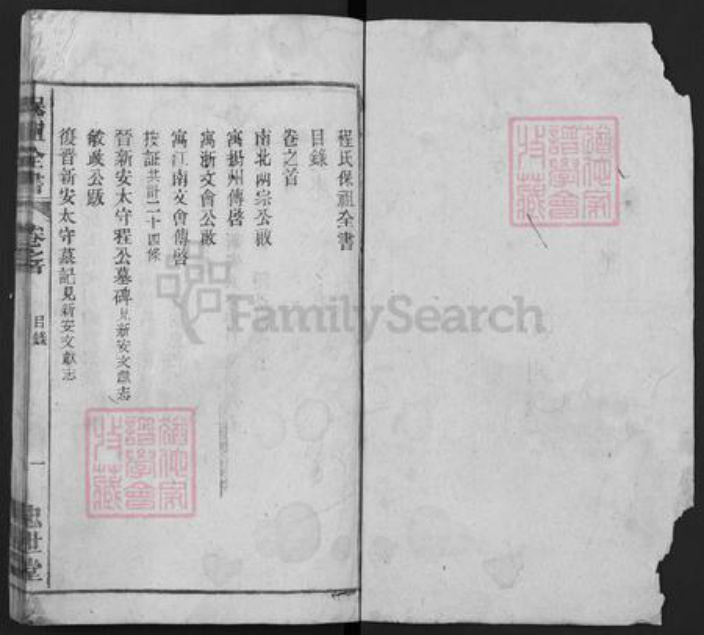 程氏保祖全書
目錄
卷之首
南北兩宗公啟
寓揚州傳啓
寓浙文會公啟
寓江南文會傳啓
按証共計二十四條
晉新安太守程公墓碑見新安文獻志
敏政公䟦
復晋新安太守墓記見新安文獻志
保祖全書
卷之首
目錄
一
忠世堂
譜學會
收藏
譜學會
收藏
FamilySearch